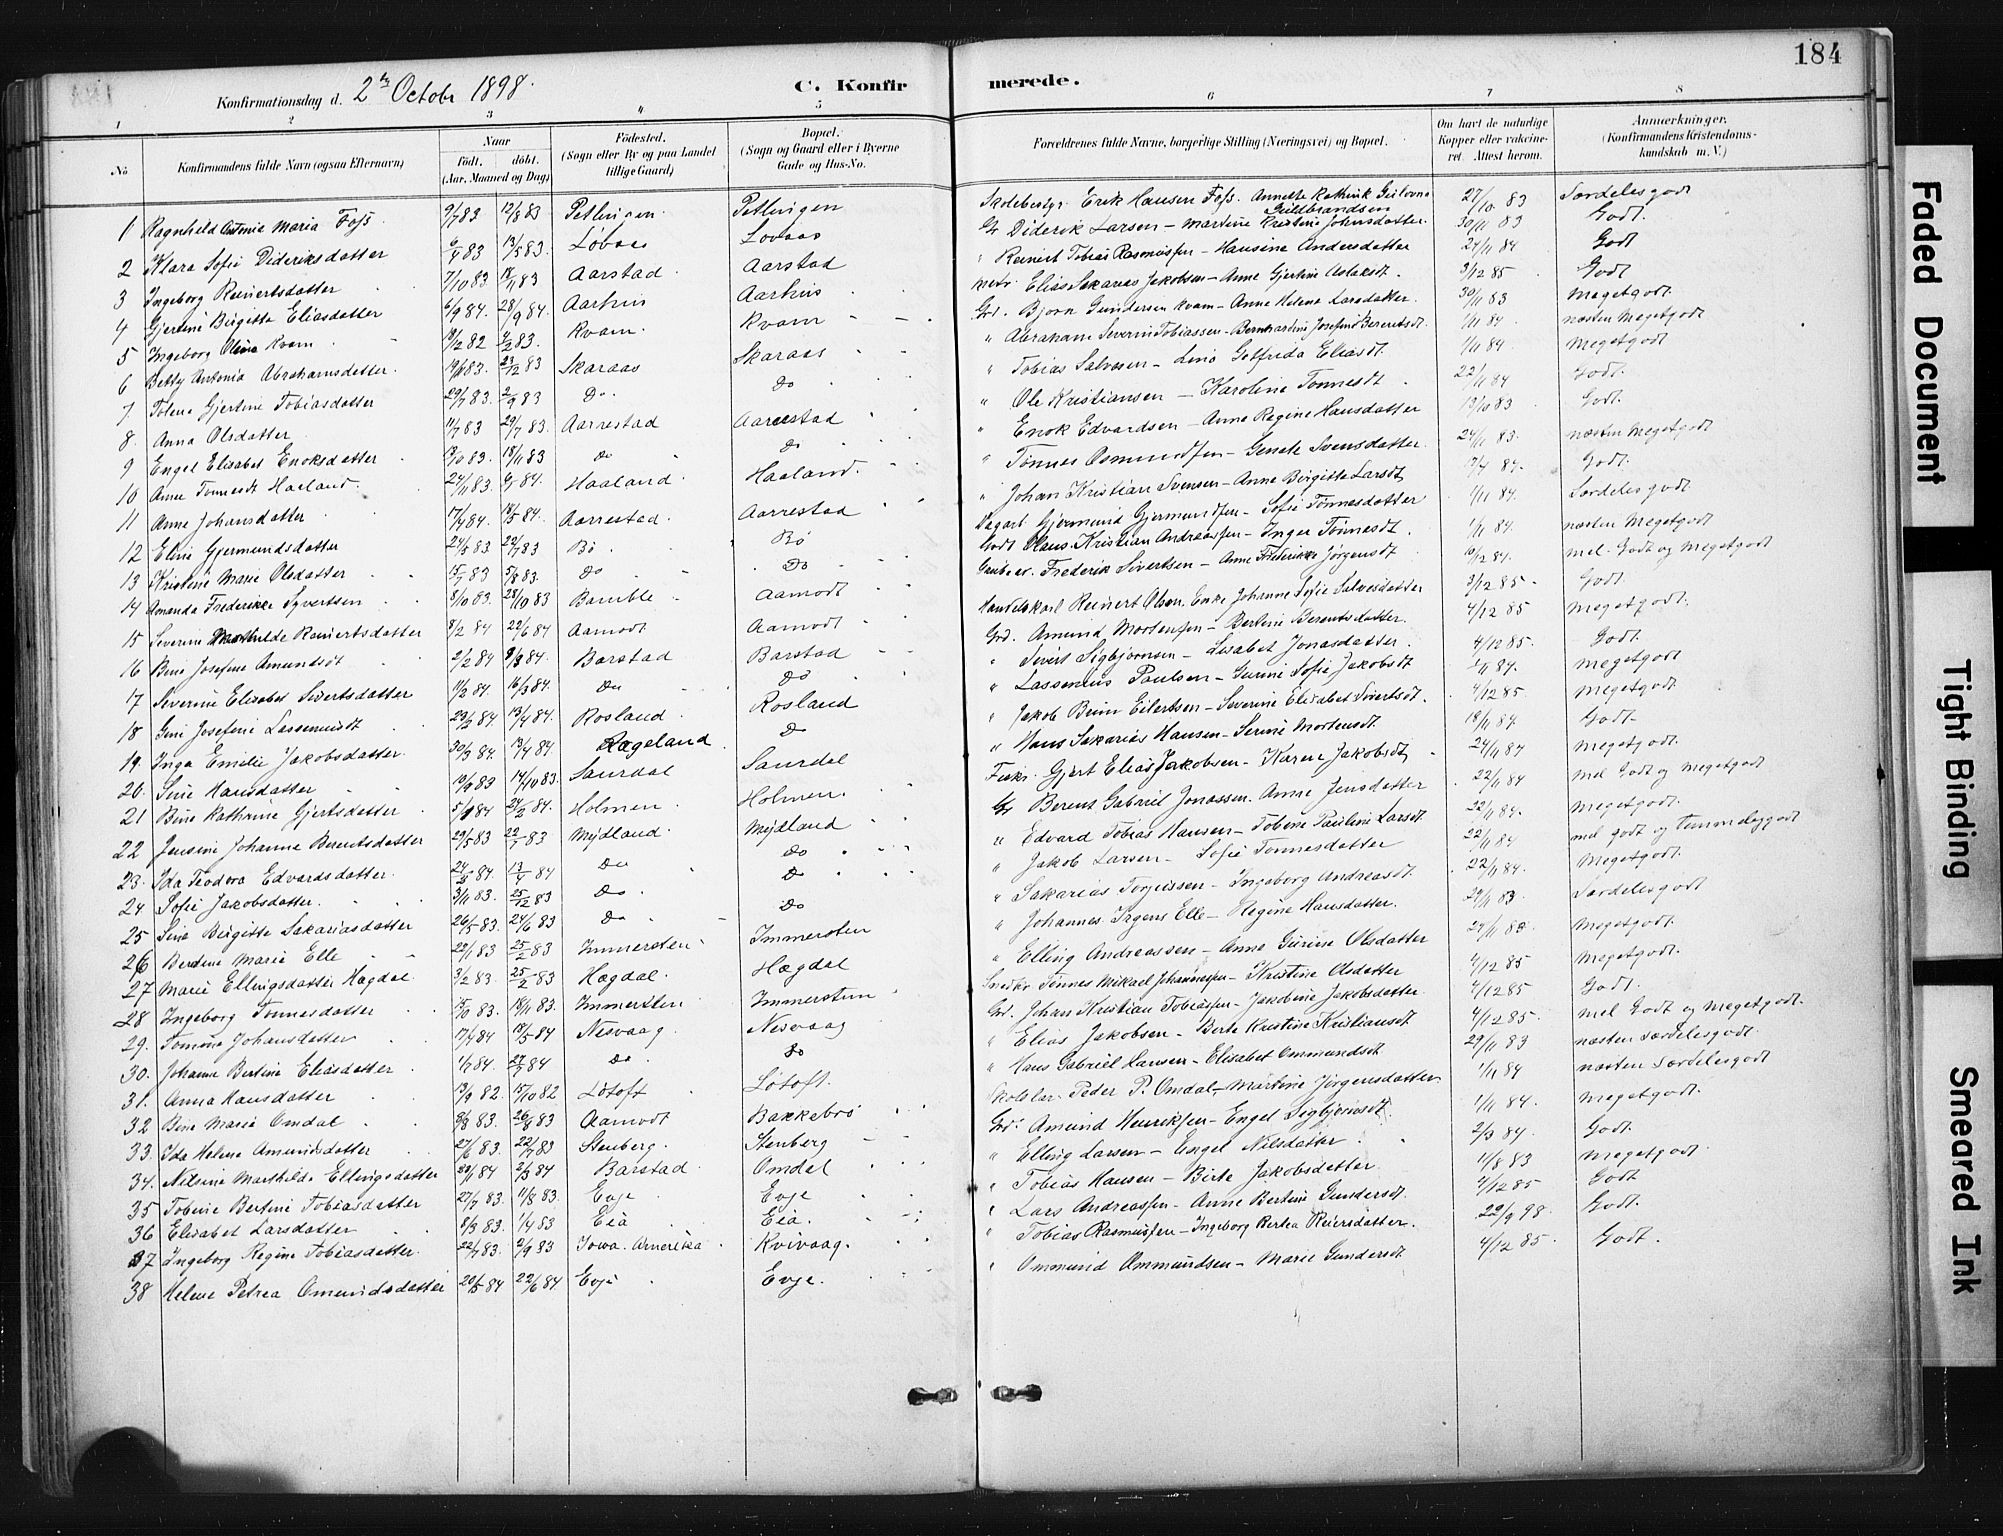 184
Konfirmationsdag d. 2den Octobr 1898. C. Konfirmerede.
1 2 3 4 5 6 7 8
No Konfirmandens fulde Navn (ogsaa Efternavn) Naar født. døbt. (Aar, Maaned og Dag) Fødested. (Sogn eller By og paa Landet tillige Gaard) Bopæl. (Sogn og Gaard eller i Byerne Gade og Hus-No. Forældrenes fulde Navne, borgerlige Stilling (Næringsvei) og Bopæl. Om havt de naturlige Kopper eller vaccineret. Attest herom. Anmærkninger. (Konfirmandens Kristendomskundskab m. V.)
1 Ragnhild Antonia Maria Foss 9/7 83 12/8 83 Erik Hansen Foss. 27/10 83 Særdelesgodt
2 Klara Sofie Dideriksdatter 13/5 83. Løvaas Lovaas Gr Diderik Larsen – Martine Kristine Johnsdatter 30/11 83 Godt.
3 Ingeborg Reinertsdatter 7/10 83 18/11 83 Aarstad Aarstad " Reinert Tobias Rasmussen – Hansine Andersdatter 24/11 84 Godt
4 Gjertine Birgitte Eliasdatter 6/9 84. 28/9 84. Aarhus Aarhus Elias Sakarias Jakobsen – Anne Gjertine Aslaksdt. 3/12 85 Godt
5 Ingeborg Oline Kvam Kvam. Kvam Grd. Bjørn Gundersen Kvam – Anne Helene Larsdatter. 30/11 83 Megetgodt.
6 Betty Antonia Abrahamsdatter. 23/12 83 Skaraas Skaraas " Abraham Severin Tobiassen – Bernhardine Josefine Berentsdt. 1/11 84 næsten Megetgodt
7 Tolene Gjertine Tobiasdatter 29/7 83. 2/9 83 Do. Do " Tobias Salvesen – Line Gotfrida Eliasdt. 1/11 84 Megetgodt
8. Anna Olsdatter 11/7 83 29/7 83. Aarrestad Aarrestad " Ole Kristiansen – Karoline Tonnesdt 22/11 84 Godt.
9 Engel Elisabet Enoksdatter 18/11 83 Do Do " Enok Edvardsen – Anne Regine Hansdatter 19/10 83 Godt.
10 Anne Tonnesdt Haaland. 24/11 83. Haaland. Haaland. " Tønnes Osmundsen – Genete Svensdatter. 24/11 83. næsten Megetgodt
11 Anne Johansdatter 17/4 84. 18/5 84. Aarrestad. Aarrestad " Johan Kristian Svensen – Anne Birgitte Larsdt Godt.
12 Eline Gjermundsdatter 24/5 83 22/7 83 Bø Bø Gjermund Gjermundsen – Sofie Tønnesdatter 1/11 84. Særdelesgodt
13 Kristine Marie Olsdatter 15/7 83 5/8 83. Do Do Olaus Kristian Andreassen – Inger Tønnesdt. 1/11 84. næsten Megetgodt
14 Amanda Frederikke Syvertsen 8/10 83. 28/10 83 Bamble Aamodt Frederik Sivertsen – Anne Frederikke Jørgensdt 10/2 84. mel. Godt og Megetgodt
15 Severine Mathilde Reinertsdatter 8/2 84 22/6 84 Aamodt Aamodt Handelskarl Reinert Olsen. Enke Johanne Sofie Salvesdatter 3/12 85. Godt.
16 Bine Josefine Amundsdt 2/2 84 9/3 84. Barstad Barstad Grd. Amund Mortensen – Bertine Berentsdatter. 4/12 85 Megetgodt.
17 Severine Elisabet Sivertsdatter 11/2 84. 16/3 84. Do Do " Sivert Sigbjørnsen – Lisabet Jonasdatter. 4/12 85. Godt.
18 Gine Josefine Lassenusdt 13/4 84. Rosland Rosland " Lassenius Paulsen – Gurine Sofie Jakobsdt 1/11 84. Megetgodt
19. Inga Emilie Jakobsdatter 30/3 84. 13/4 84 Rægeland Do " Jakob Beiner Eilertsen – Severine Elisabet Sivertsdt. 4/12 85 Megetgodt.
20. Sine Hansdatter 14/10 83. Saurdal Saurdal " Hans Sakarias Hansen – Serine Mortensdt. 18/11 84. Godt.
21 Bine Kathrine Gjertsdatter 24/2 84. Holmen. Holmen. Gjert Elias Jakobsen – Karen Jakobsdt 24/11 84 Megetgodt.
22 Jensine Johanne Berentsdatter 29/5 83 22/7 83 Mydland. Mydland Gr Berent Gabriel Jonassen. Anne Jensdatter 22/11 84 Mel Godt og Megetgodt
23. Ida Teodora Edvardsdatter. 13/4 84 Do Do " Edvard Tobias Hansen – Tobine Pauline Larsdt. 22/11 84. Megetgodt.
24 Sofie Jakobsdatter. 3/11 83. 25/12 83 Do. Do " Jakob Larsen – Sofie Tonnesdatter 22/11 84 mel godt og temmeliggodt
25 Sine Birgitte Sakariasdatter 26/5 83. 24/6 83 Do Do " Sakarias Torjussen – Ingeborg Andreasdt. 22/11 84. Megetgodt.
26 Bertine Marie Elle 22/1 83 25/2 83 Immersten Immersten " Johannes Irgens Elle – Regine Hansdatter. 29/11 83 Særdelesgodt
27 Marie Ellingsdatter Hægdal. 3/2 83. 25/2 83 Hægdal. Hægdal " Elling Andreassen – Anne Gurine Olsdatter Megetgodt.
28 Ingeborg Tonnesdatter 18/11 83. Immersten Immersten Snedkr Tønnes Mikael Johannessen – Kristine Olsdatter 4/12 85 Megetgodt.
29. Tomine Johansdatter 17/4 84 18/5 84 Nesvaag. Nesvaag Grd. Johan Kristian Tobiassen – Jakobine Jakobsdatter 4/12 85 Godt.
30. Johanne Bertine Eliasdatter Do. Do " Elias Jakobsen – Berte Kristine Kristiansdt 4/12 85. mel Godt og Megetgodt.
31. Anna Hansdatter 13/9 82. 15/10 82 Løtoft Løtoft. " Hans Gabriel Hansen – Elisabet Ommundsdt 29/11 83 næsten Særdelesgodt.
32 Bine Marie Omdal 26/8 83 Aamodt Bakkebrø Peder P. Omdal – Martine Jörgensdatter 1/11 84 næsten Særdelesgodt
33. Ida Helene Amundsdatter 27/6 83. 22/7 83 Stenberg. Stenberg Grd. Amund Henriksen – Engel Sigbjørnsdt 1/11 84. Megetgodt.
34. Nilsine Marthilde Ellingsdatter 22/1 84 2/3 84 Barstad Omdal " Elling Larsen – Engel Nilsdatter 2/3 84 Godt.
35 Tobine Bertine Tobiasdatter 27/7 83. 11/8 83. Evje Evje " Tobias Hansen – Birte Jakobsdatter. 1/8 83 Megetgodt.
36 Elisabet Larsdatter 8/3 83. 1/4 83 Eia Eia. " Lars Andreassen – Anne Bertine Gundersdt. 4/12 85 Godt
37 Ingeborg Regine Tobiasdatter. 22/7 83. 2/9 83 Iowa. Amerika Kvivaag. " Tobias Rasmussen – Ingeborg Bertea Reiersdatter. 22/9 98. Godt.
38 Helene Petrea Omundsdatter 20/5 84 22/6 84 Evje Evje. " Ommund Ommundsen – Marie Gundersdt 4/12 85. Godt.
Faded Document
Tight Binding
Smeared Ink